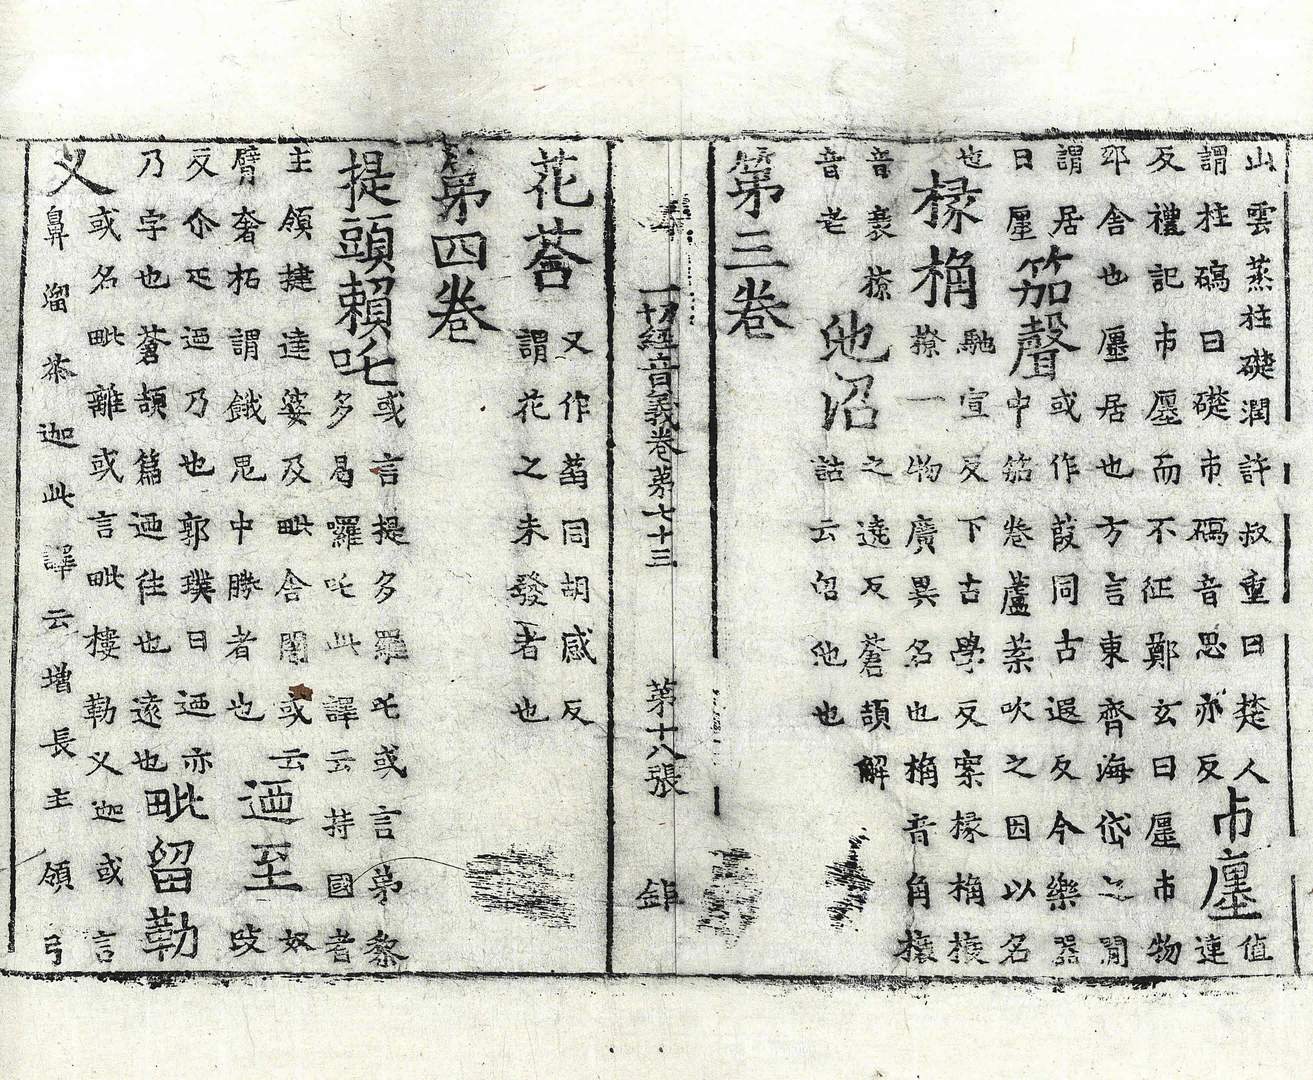 山雲蒸柱礎潤許叔重曰楚人
謂柱磶曰礎市磶音思亦反
市廛
值
連
反禮記市廛而不征鄭玄曰廛市物
邸舍也廛居也方言東齊海岱之間
謂居
曰廛
笳聲
或作葭同古遐反今樂器
中笳卷蘆葉吹之因以名
也
椽桷
馳宣反下古學反案椽桷榱
橑一物廣異名也桷音角榱
音衰橑
音老
池沼
之遶反蒼頡解
詁云沼池也
第三卷
一切經音義卷第七十三 第十八張
花荅
又作菡同胡感反
謂花之未發者也
第四卷
提頭賴吒
或言提多羅吒或言弟黎
多曷羅吒此譯云持國者
主領揵達婆及毗舍闍或云
臂奢柘謂餓鬼中勝者也
迺至
奴
改
反尒疋迺乃也郭璞曰迺亦
乃字也蒼頡篇迺往也遠也
毗留勒
叉
或名毗離或言毗樓勒叉迦或言
鼻溜荼迦此譯云增長主領弓